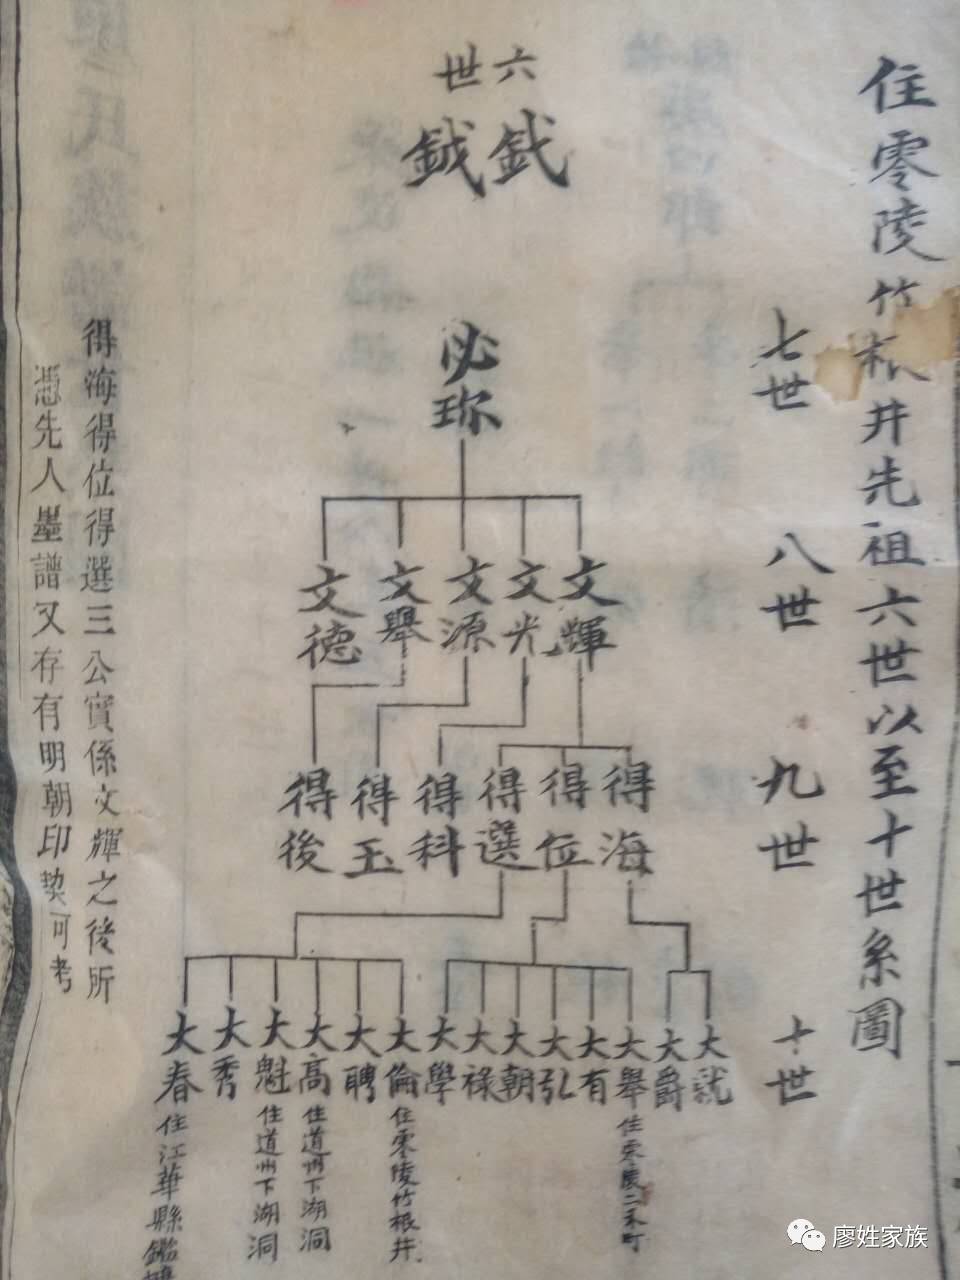 住零陵竹根井先祖六世以至十世系圖
六世
七世
八世
九世
十世
鉽
鉞
必珎
文輝
文光
文源
文舉
文德
得海
得位
得選
得科
得玉
得後
大就
大爵
大舉住零陵二禾町
大有
大弘
大朝
大祿
大學
大倫住零陵竹根井
大聘
大高住道州下湖洞
大魁住道州下湖洞
大秀
大春住江華縣鑑
得海得位得選三公實係文輝之後所
憑先人墨譜又存有明朝印契可考
廖姓家族